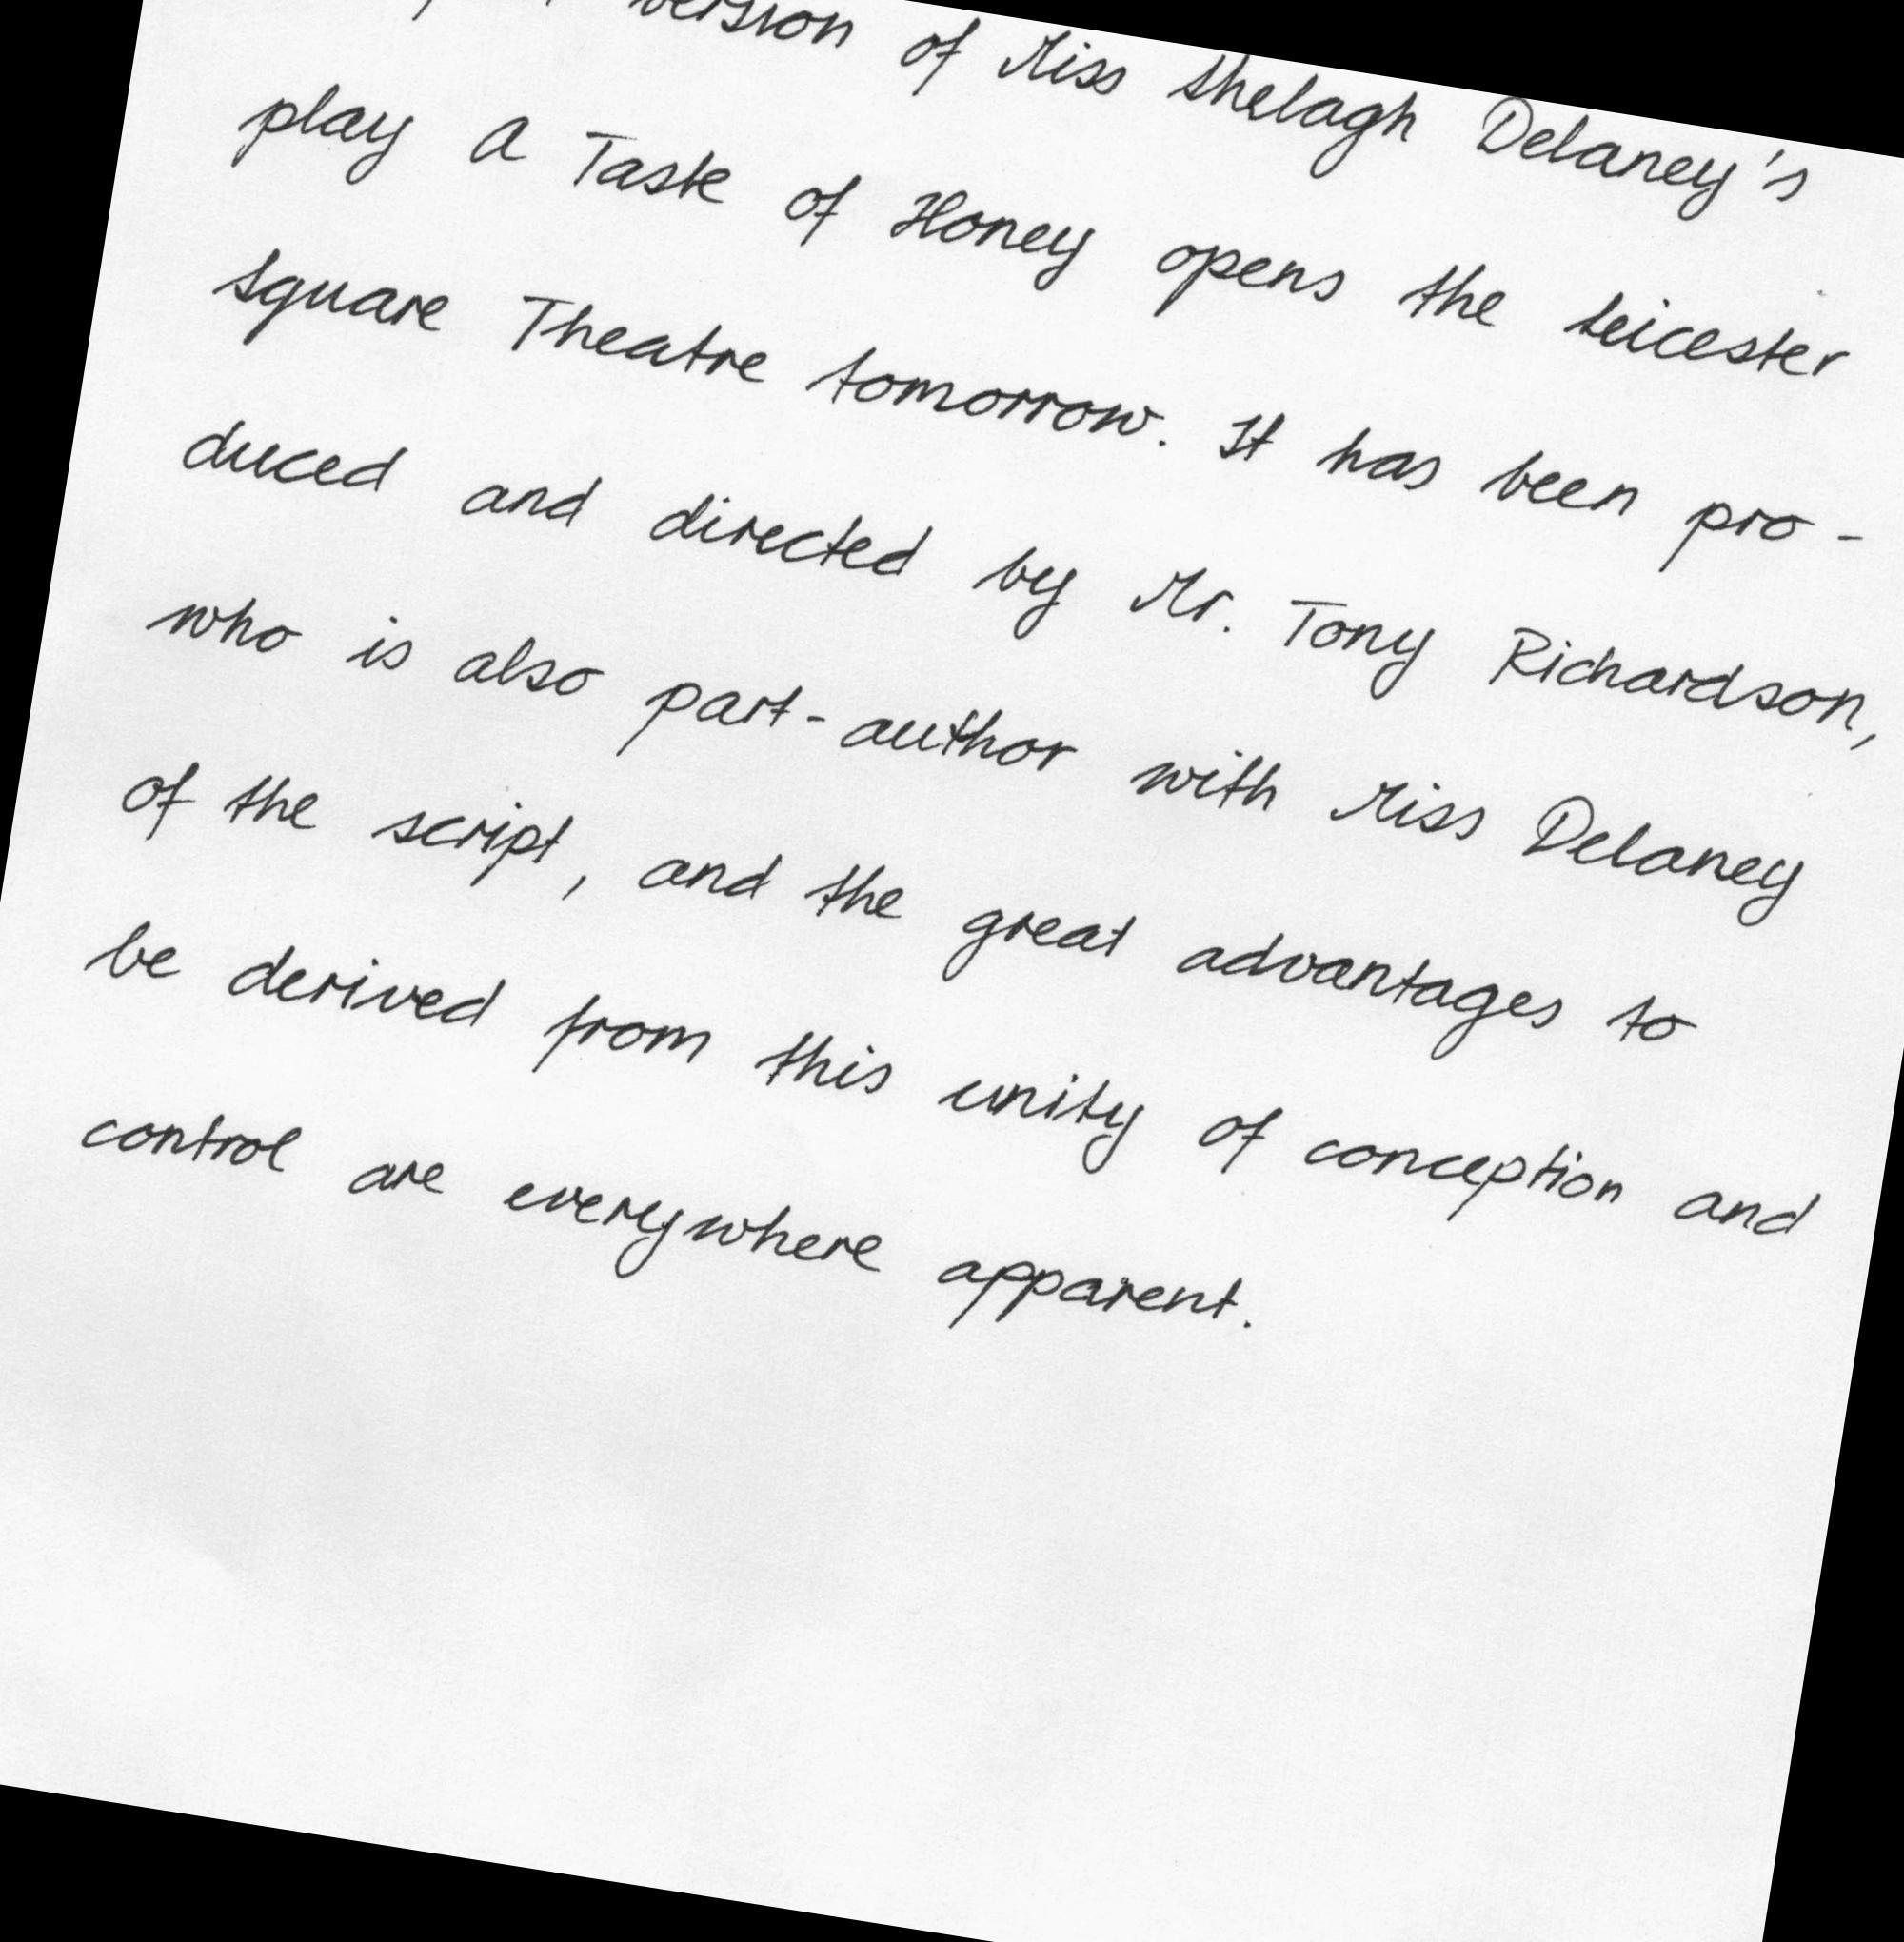 version of Miss Shelagh Delaney's
play A Taste of Honey opens the Leicester
Square Theatre tomorrow. It has been pro-
duced and directed by Mr. Tony Richardson,
who is also part-author with Miss Delaney
of the script, and the great advantages to
be derived from this unity of conception and
control are everywhere apparent.